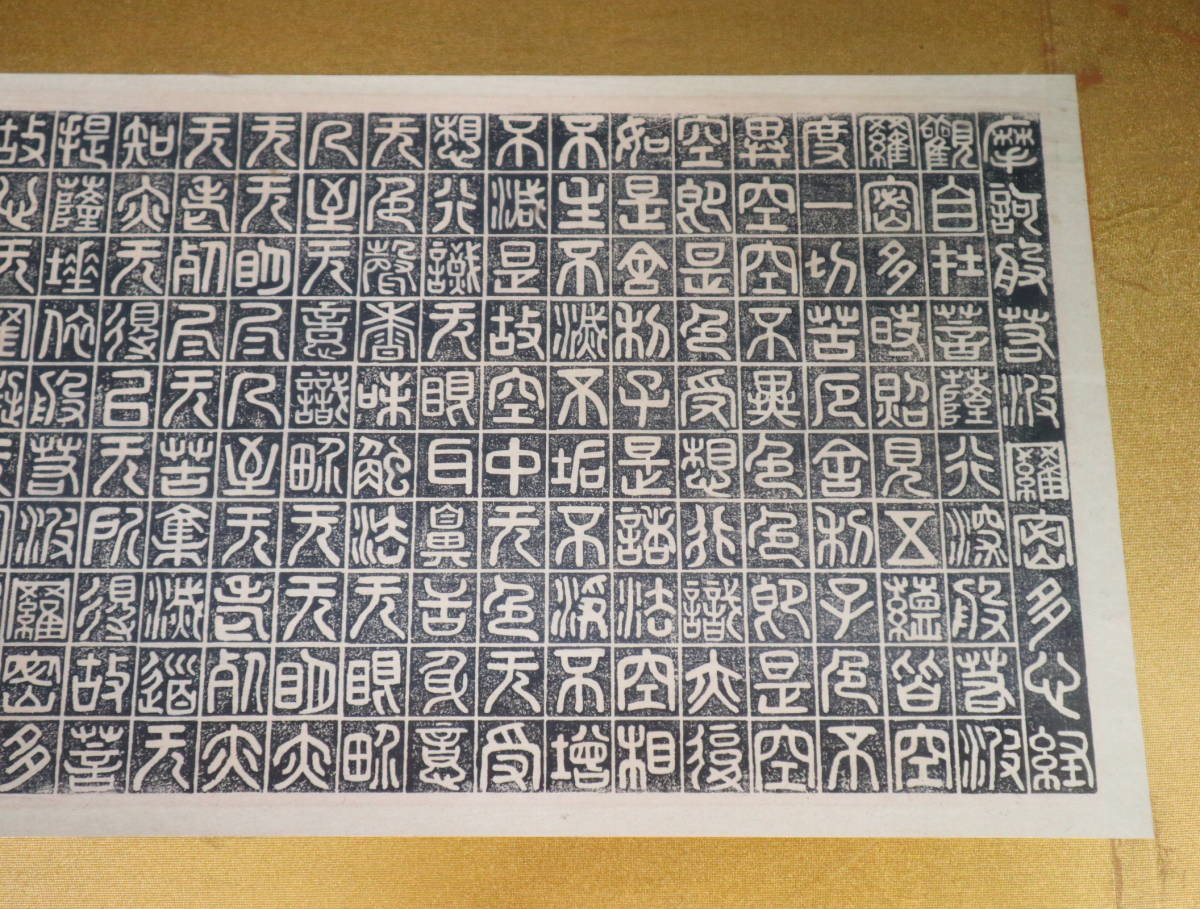 摩訶般若波羅密多心経
觀自在菩薩行深般若波
羅密多時照見五蘊皆空
度一切苦厄舍利子色不
異空空不異色色即是空
空即是色受想行識亦復
如是舍利子是諸法空相
不生不滅不垢不淨不增
不減是故空中无色无受
想行識无眼耳鼻舌身意
无色聲香味觸法无眼界
乃至无意識界无无明亦
无无明尽乃至无老死亦
无老死尽无苦集滅道无
知亦无得以无所得故菩
提薩埵依般若波羅密多
故心无罣礙